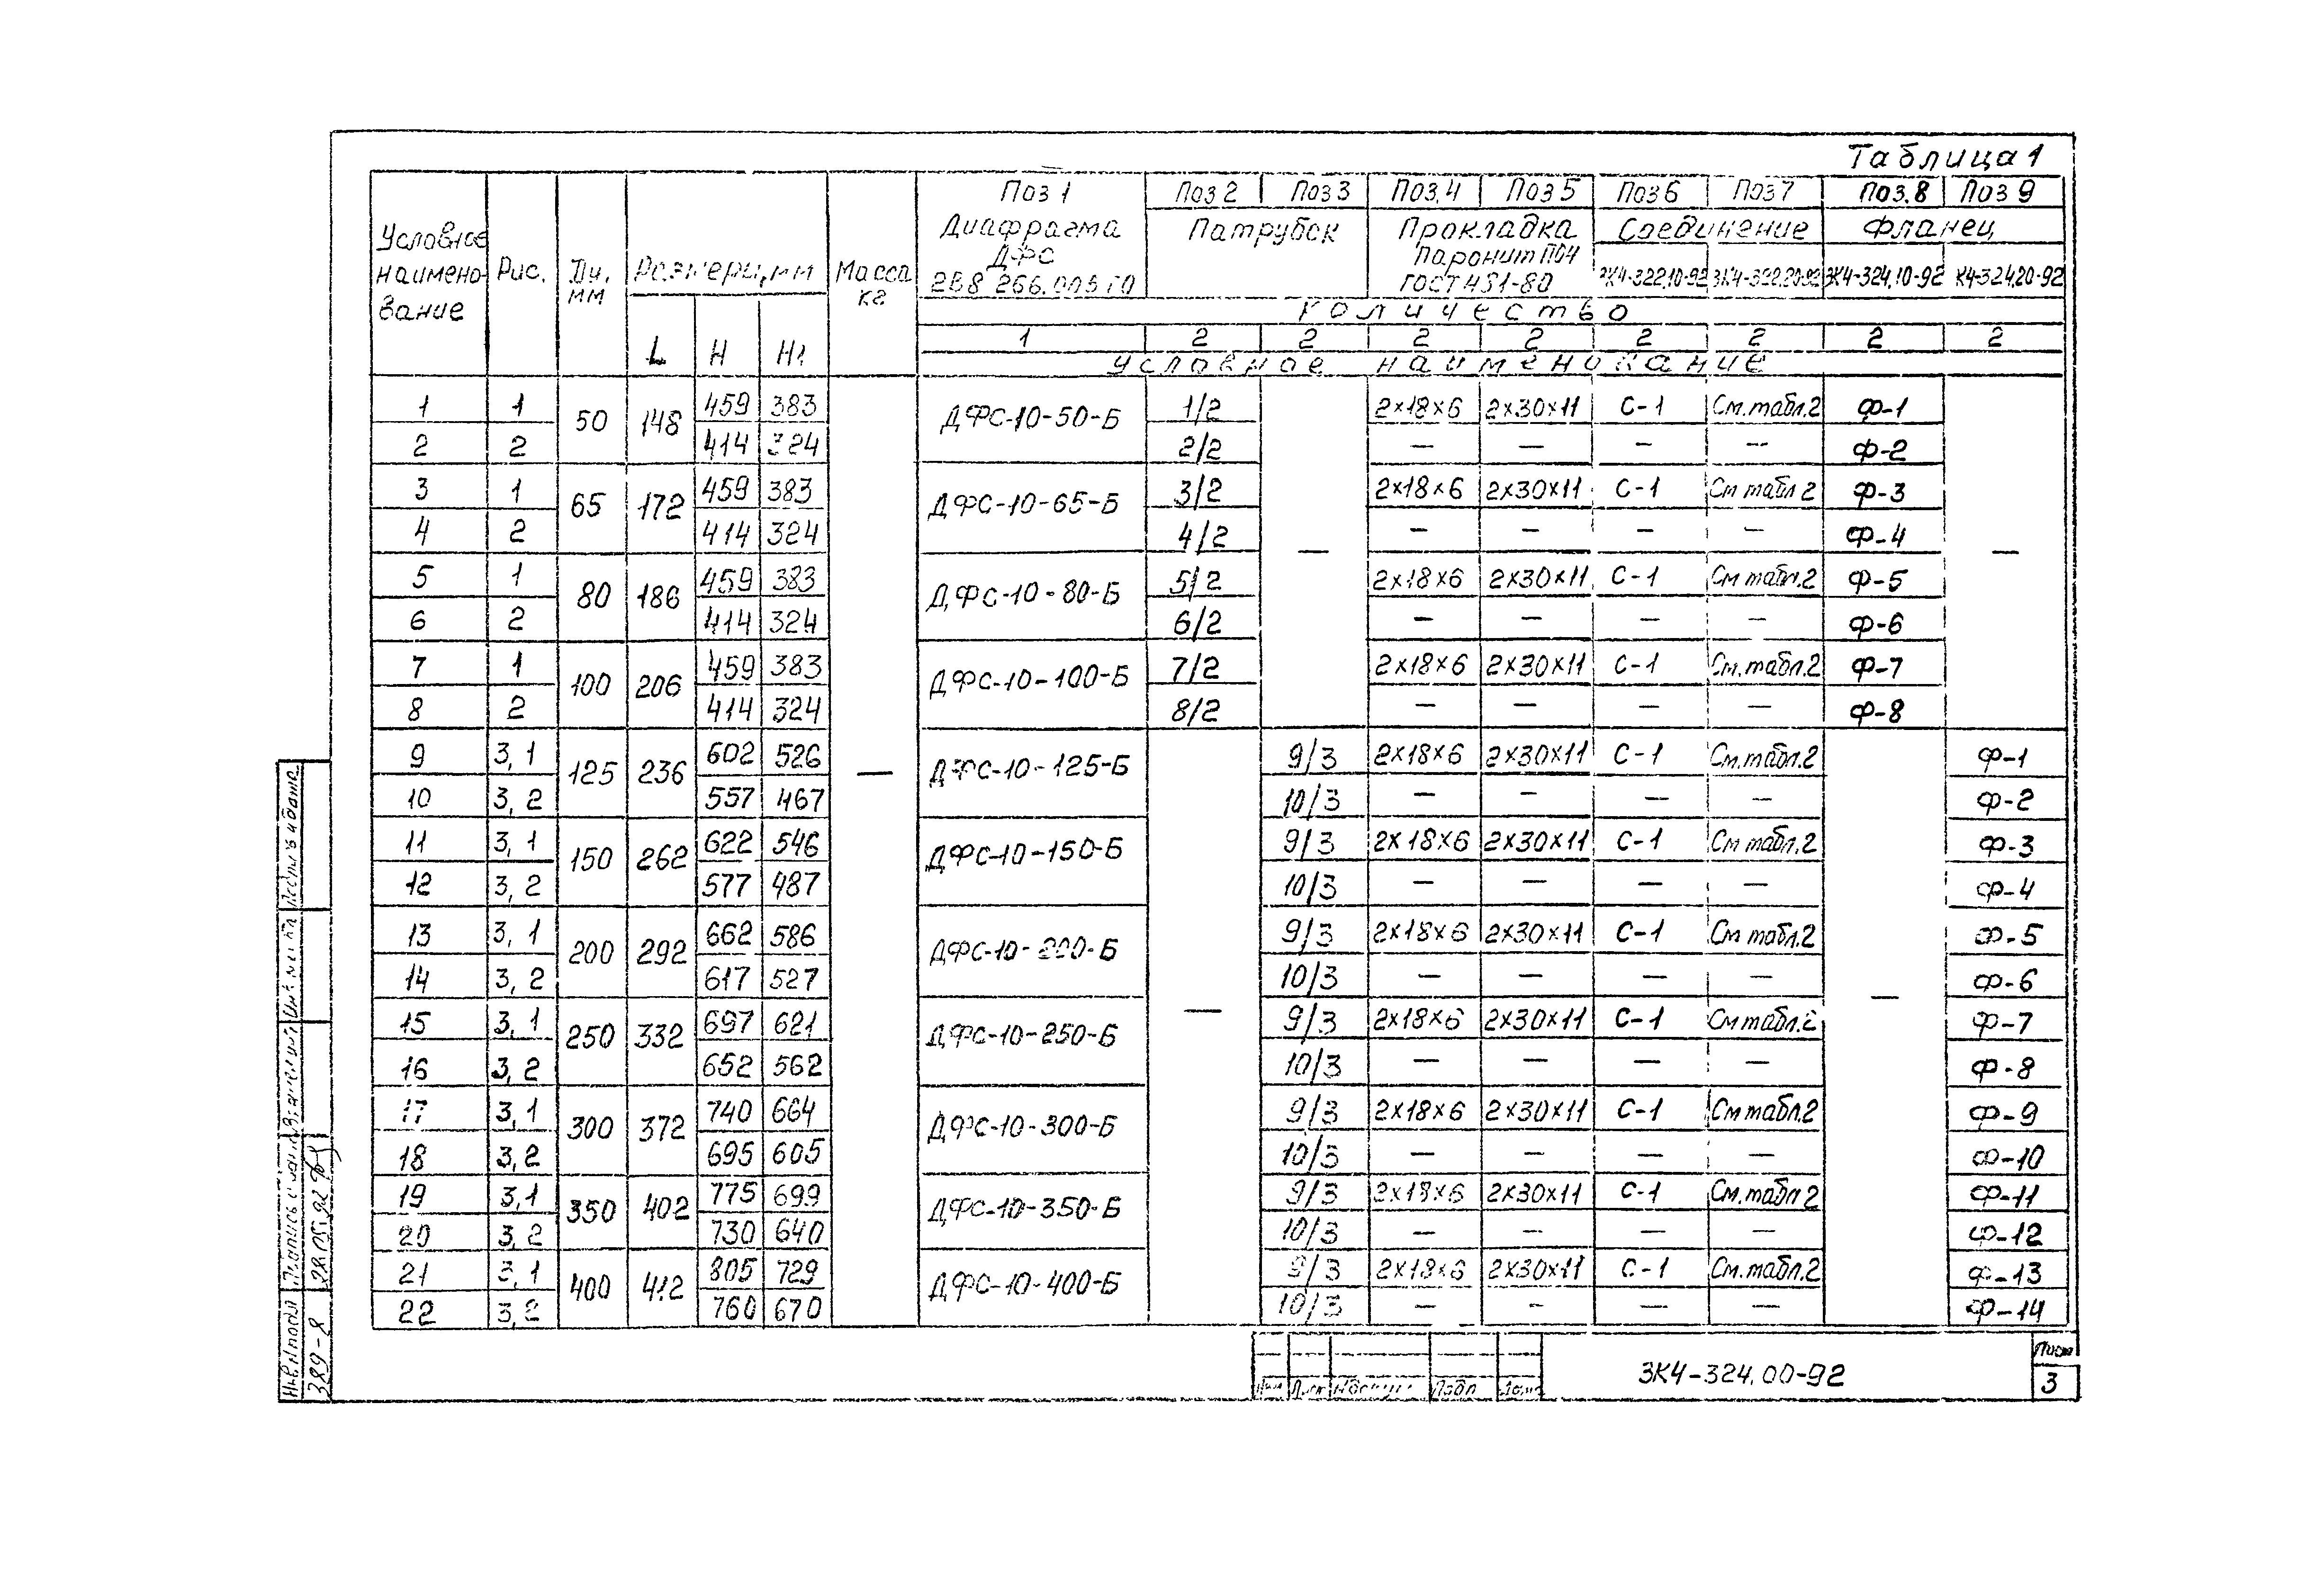 Таблица 1
Условное наименование Рис. Ду, мм Размеры, мм Масса кг Поз 1 Поз 2 Поз 3 Поз.4 Поз 5 Поз 6 Поз 7 Поз.8 Поз 9
Диафрагма ДФС Патрубок Прокладка Соединение Фланец
Паронит ПОН
ГОСТ 481-80 3К4-322.10-92 3К4-322.20-92 3К4-324.10-92 К4-324.20-92
Количество
L H H1 1 2 2 2 2 2 2 2 2
Условное наименование
1 1 50 148 459 383 — ДФС-10-50-Б 1/2 — 2×18×6 2×30×11 С-1 См.табл.2 Ф-1 —
2 2 414 324 2/2 — — — — Ф-2
3 1 65 172 459 383 ДФС-10-65-Б 3/2 2×18×6 2×30×11 С-1 См табл 2 Ф-3
4 2 414 324 4/2 — — — — Ф-4
5 1 80 186 459 383 ДФС-10-80-Б 5/2 2×18×6 2×30×11 С-1 См табл.2 Ф-5
6 2 414 324 6/2 — — — — Ф-6
7 1 100 206 459 383 ДФС-10-100-Б 7/2 2×18×6 2×30×11 С-1 См.табл.2 Ф-7
8 2 414 324 8/2 — — — — Ф-8
9 3, 1 125 236 602 526 ДФС-10-125-Б — 9/3 2×18×6 2×30×11 С-1 См.табл.2 — Ф-1
10 3, 2 557 467 10/3 — — — — Ф-2
11 3, 1 150 262 622 546 ДФС-10-150-Б 9/3 2×18×6 2×30×11 С-1 См табл.2 Ф-3
12 3, 2 577 487 10/3 — — — — Ф-4
13 3, 1 200 292 662 586 ДФС-10-200-Б 9/3 2×18×6 2×30×11 С-1 См табл.2 Ф-5
14 3, 2 617 527 10/3 — — — — Ф-6
15 3, 1 250 332 697 621 ДФС-10-250-Б 9/3 2×18×6 2×30×11 С-1 См табл.2 Ф-7
16 3, 2 652 562 10/3 — — — — Ф-8
17 3,1 300 372 740 664 ДФС-10-300-Б 9/3 2×18×6 2×30×11 С-1 См табл.2 Ф-9
18 3,2 695 605 10/3 — — — — Ф-10
19 3,1 350 402 775 699 ДФС-10-350-Б 9/3 2×18×6 2×30×11 С-1 См.табл 2 Ф-11
20 3,2 730 640 10/3 — — — — Ф-12
21 3,1 400 805 729 ДФС-10-400-Б 9/3 2×18×6 2×30×11 С-1 См.табл.2 Ф-13
22 3,2 760 670 10/3 — — — — Ф-14
3К4-324.00-92
Лист
3
389-8